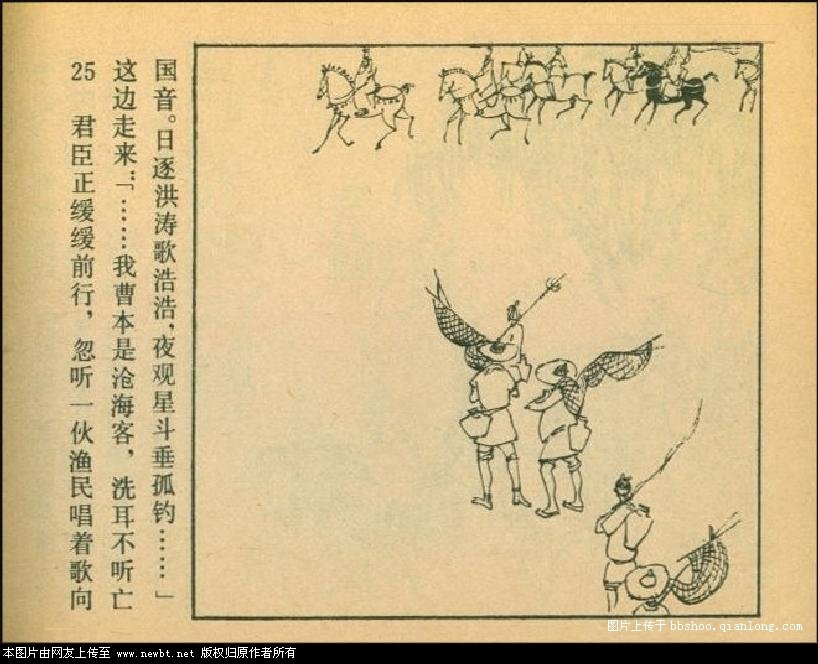 25 君臣正缓缓前行，忽听一伙渔民唱着歌向
这边走来：「……我曹本是沧海客，洗耳不听亡
国音。日逐洪涛歌浩浩，夜观星斗垂孤钓……」
图片上传于 bbshoo.qianlong.com
本图片由网友上传至 www.newbt.net 版权归原作者所有